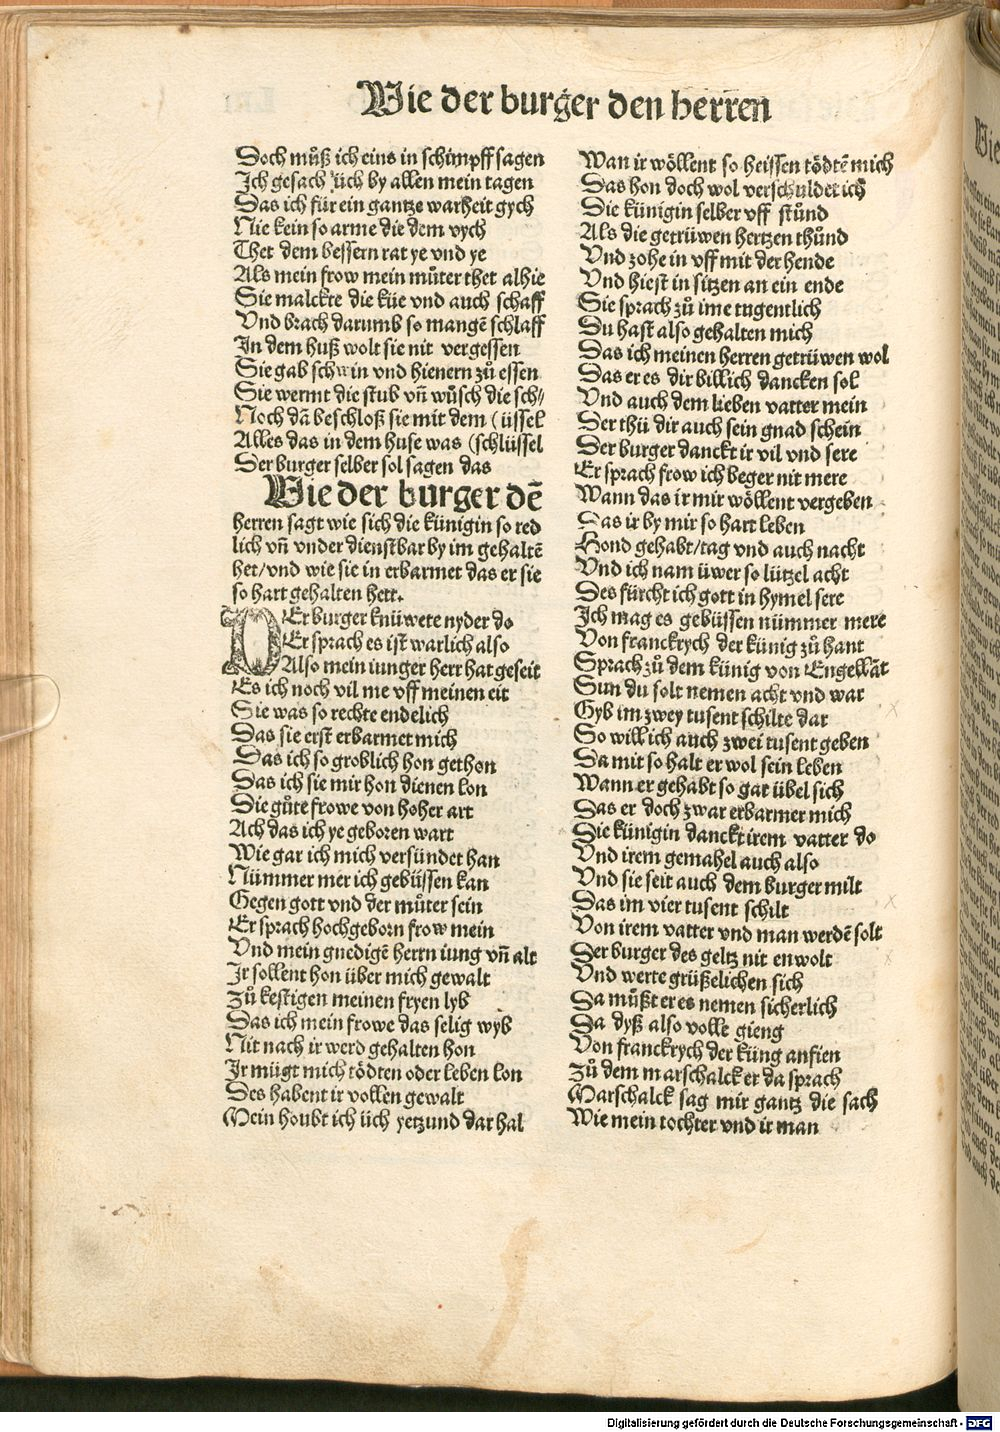 Wie der burger den herren
Doch můß ich eins in schimpff sagen
Ich gesach üch by allen mein tagen
Das ich für ein gantze warheit gych
Nie kein so arme die dem vych
Thet dem bessern rat ye vnd ye
Als mein frow mein můter thet alhie
Sie malckte die küe vnd auch schaff
Vnd brach darumb so mangē schlaff
In dem huß wolt sie nit vergessen
Sie gab schwin vnd hienern zů essen
Sie wermt die stub vñ wůsch die sch⸗
Noch dā beschloß sie mit dem (üssel
Alles das in dem huse was (schlüssel
Der burger selber sol sagen das
Wie der burger dē
herren sagt wie sich die künigin so red
lich vñ vnder dienstbar by im gehaltē
het/vnd wie sie in erbarmet das er sie
so hart gehalten hett.
DEr burger knüwete nyder do
Er sprach es ist warlich also
Also mein iunger herr hat geseit
Es ich noch vil me vff meinen eit
Sie was so rechte endelich
Das sie erst erbarmet mich
Das ich so groblich hon gethon
Das ich sie mir hon dienen lon
Die gůte frowe von hoher art
Ach das ich ye geboren wart
Wie gar ich mich versündet han
Nümmer mer ich gebüssen kan
Gegen gott vnd der můter sein
Er sprach hochgeborn frow mein
Vnd mein gnedigē herrn iung vñ alt
Ir sollent hon über mich gewalt
Zů kestigen meinen fryen lyb
Das ich mein frowe das selig wyb
Nit nach ir werd gehalten hon
Ir mügt mich tödten oder leben lon
Des habent ir vollen gewalt
Mein houbt ich üch yetzund dar hal
Wan ir wöllent so heissen tödtē mich
Das hon doch wol verschuldet ich
Die künigin selber vff stůnd
Als die getrüwen hertzen thůnd
Vnd zohe in vff mit der hende
Vnd hiest in sitzen an ein ende
Sie sprach zů ime tugentlich
Du hast also gehalten mich
Das ich meinen herren getrüwen wol
Das er es dir billich dancken sol
Vnd auch dem lieben vatter mein
Der thů dir auch sein gnad schein
Der burger danckt ir vil vnd sere
Er sprach frow ich beger nit mere
Wann das ir mir wöllent vergeben
Das ir by mir so hart leben
Hond gehabt/tag vnd auch nacht
Vnd ich nam üwer so lützel acht
Des fürcht ich gott in hymel sere
Ich mag es gebüssen nümmer mere
Von franckrych der künig zů hant
Sprach zů dem künig von Engellāt
Sun du solt nemen acht vnd war
Gyb im zwey tusent schilte dar
So will ich auch zwei tusent geben
Da mit so halt er wol sein leben
Wann er gehabt so gar übel sich
Das er doch zwar erbarmer mich
Die künigin danckt irem vatter do
Vnd irem gemahel auch also
Vnd sie seit auch dem burger milt
Das im vier tusent schilt
Von irem vatter vnd man werdē solt
Der burger des geltz nit enwolt
Vnd werte grüßelichen sich
Da můßt er es nemen sicherlich
Da dyß also volle gieng
Von franckrych der küng anfien
Zů dem marschalck er da sprach
Marschalck sag mir gantz die sach
Wie mein tochter vnd ir man
Digitalisierung gefördert durch die Deutsche Forschungsgemeinschaft - DFG